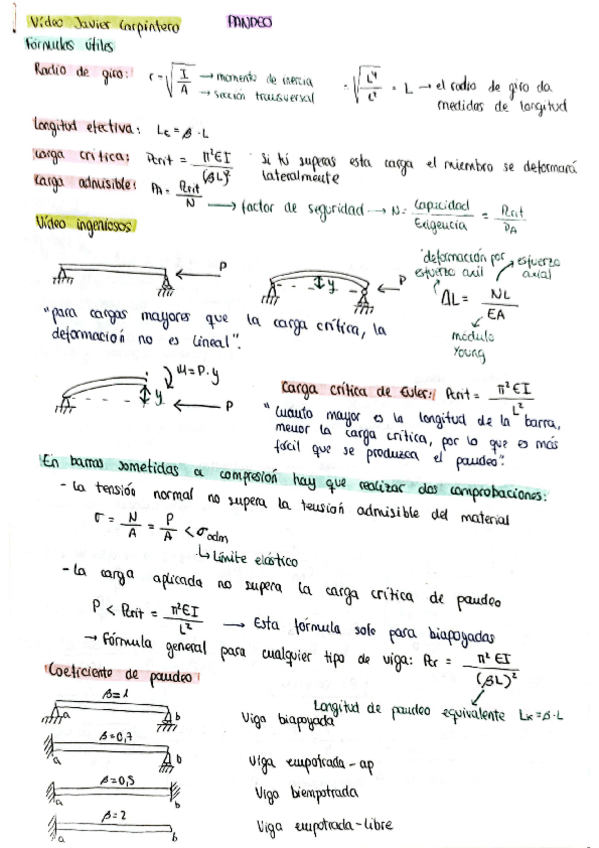 Vídeo Javier Carpintero
PANDEO
Fórmulas útiles
Radio de giro: r = √(I/A) → momento de inercia → sección transversal = √(L⁴/L²) = L → el radio de giro da medidas de longitud
Longitud efectiva: Lₖ = β · L
Carga crítica: Pcrit = π²EI/(βL)² si tú superas esta carga el miembro se deformará lateralmente
Carga admisible: PA = Pcrit/N → factor de seguridad → N = Capacidad/Exigencia = Pcrit/PA
Vídeo ingeniosos
P
y
P
deformación por esfuerzo axil
esfuerzo axial
ΔL = NL/EA
módulo Young
"para cargas mayores que la carga crítica, la
deformación no es lineal".
M = P · y
y
P
Carga crítica de Euler: Pcrit = π²EI/L²
"Cuanto mayor es la longitud de la barra,
menor la carga crítica, por lo que es más
fácil que se produzca el pandeo".
En barras sometidas a compresión hay que realizar dos comprobaciones:
- La tensión normal no supera la tensión admisible del material
σ = N/A = P/A < σadm
↳ Límite elástico
- La carga aplicada no supera la carga crítica de pandeo
P < Pcrit = π²EI/L² → Esta fórmula solo para biapoyadas
→ Fórmula general para cualquier tipo de viga: Pcr = π²EI/(βL)²
Coeficiente de pandeo:
Longitud de pandeo equivalente Lₖ = β · L
β = 1
a b
Viga biapoyada
β = 0,7
a b
Viga empotrada - ap
β = 0,5
a b
Viga biempotrada
β = 2
a b
Viga empotrada - libre